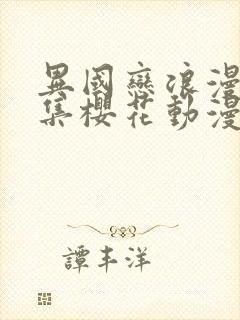 異國戀浪漫
集櫻花動漫
譚丰洋